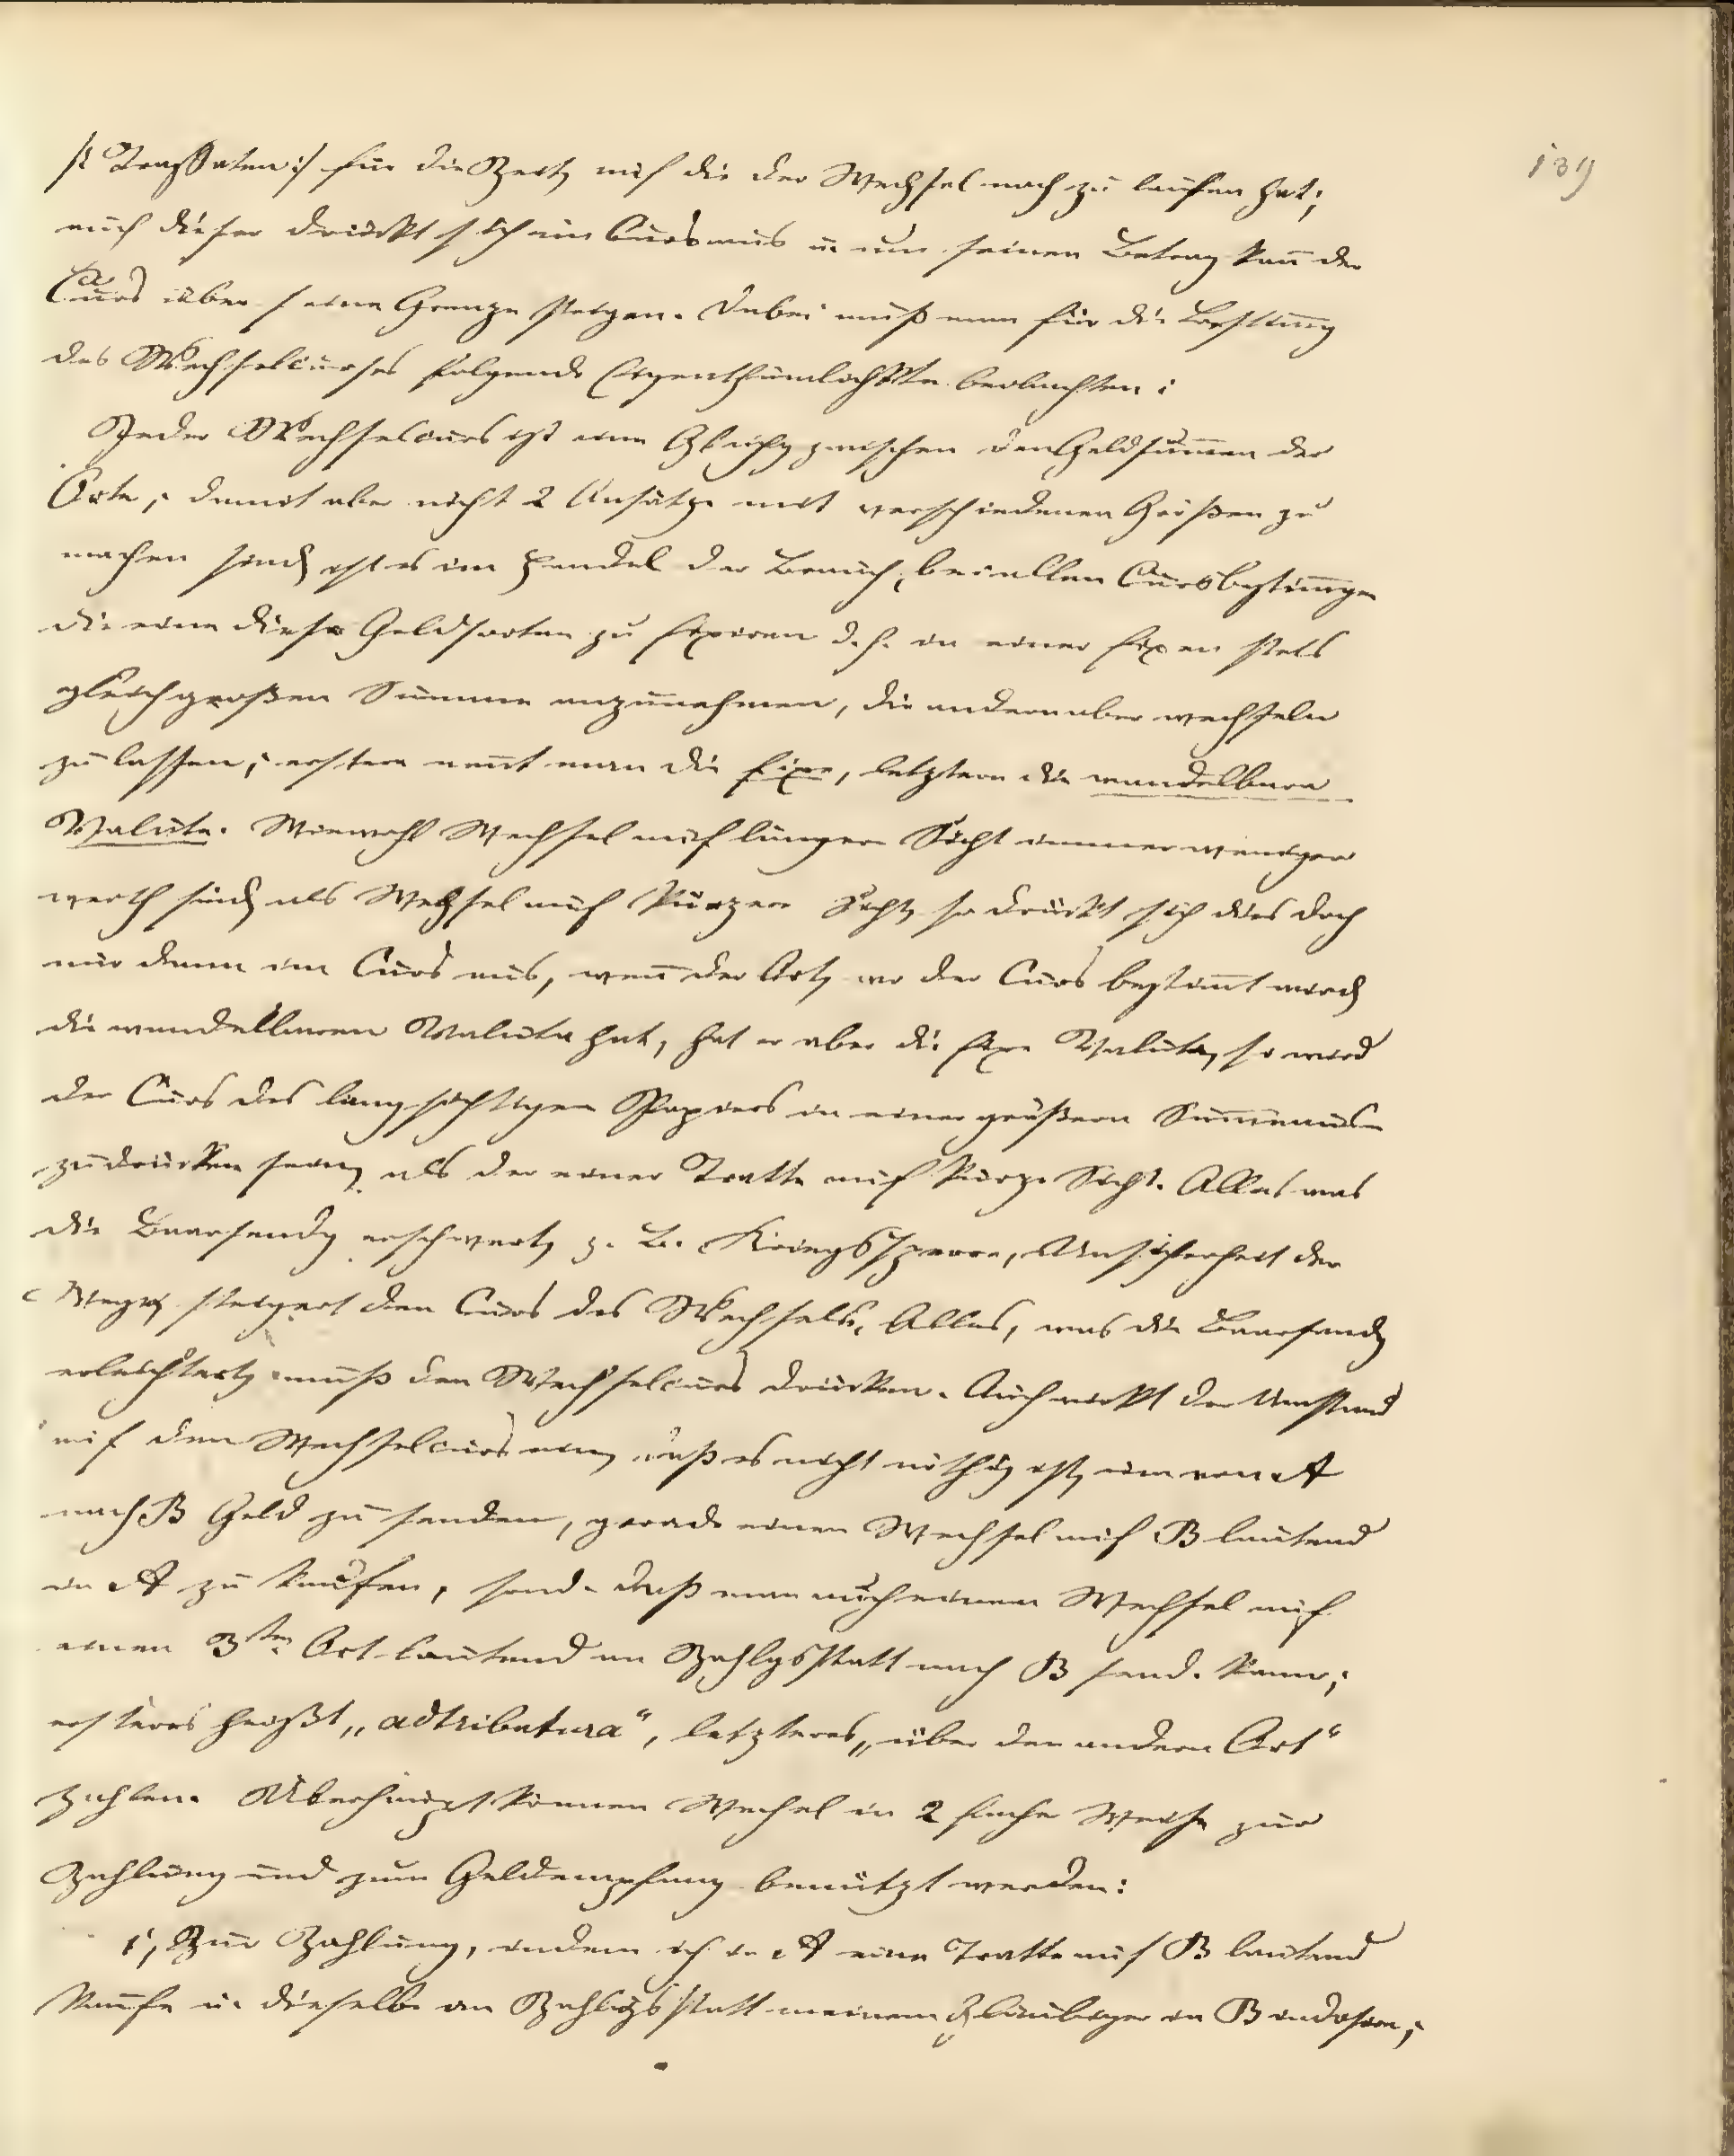 139
/: Trassaten :/ für die Zeit, auf die der Wechsel noch zu laufen hat;
auch dieser drückt sich im Curs aus u. um seinen Betrag kañ der
Curs über seine Grenze steigen. Dabei muß man für die Bestim̃ung
des Wechselcurses folgende Eigenthümlichkten beobachten:
Jeder Wechselcurs ist eine Gleichg zwischen den Geldsum̃en der
Orte; damit aber nicht 2 Ansätze mit verschiedenen Größen zu
machen sind, ist es im Handel der Brauch, bei allen Cursbestim̃gen
die eine dieser Geldsorten zu fixiren d. h. in einer fixen stets
gleichgroßen Summe anzunehmen, die andern aber wechseln
zu lassen; erstere neñt man die fixe, letztere die wandelbare
Valuta. Wiewohl Wechsel auf längere Sicht immer weniger
werth sind, als Wechsel auf kürzere Sicht, so drückt sich dies doch
nur dann im Curs aus, weñ der Ort, wo der Curs bestim̃t wird,
die wandelbaren Valuta hat, hat er aber die fixe Valuta, so wird
der Curs des langsichtigen Papiers in einer größern Sum̃e aus-
zudrücken sein, als der einer Tratte auf kurze Sicht. Alles was
die Baarsendg erschwert, z. B. Kriegssperre, Unsicherheit der
Wege, steigert den Curs des Wechsels, Alles, was die Baarsendg
erleichtert, muß den Wechselcurs drücken. Auch wirkt der Umstand
auf den Wechselcurs ein, daß es nicht nöthig ist, um von A
nach B Geld zu senden, gerade einen Wechsel auf B lautend
in A zu kaufen, sond. daß man auch einen Wechsel auf
einen 3ten Ort lautend an Zahlgsstatt nach B send. kann;
ersteres heißt „adtributura“, letzteres „über den andern Ort“
zahlen. Überhaupt können Wechsel in 2facher Weise zur
Zahlung und zum Geldempfang benützt werden:
1, Zur Zahlung, indem ich in A eine Tratte auf B lautend
kaufe u. dieselbe an Zahlgsstatt meinem Gläubiger in B indosire;